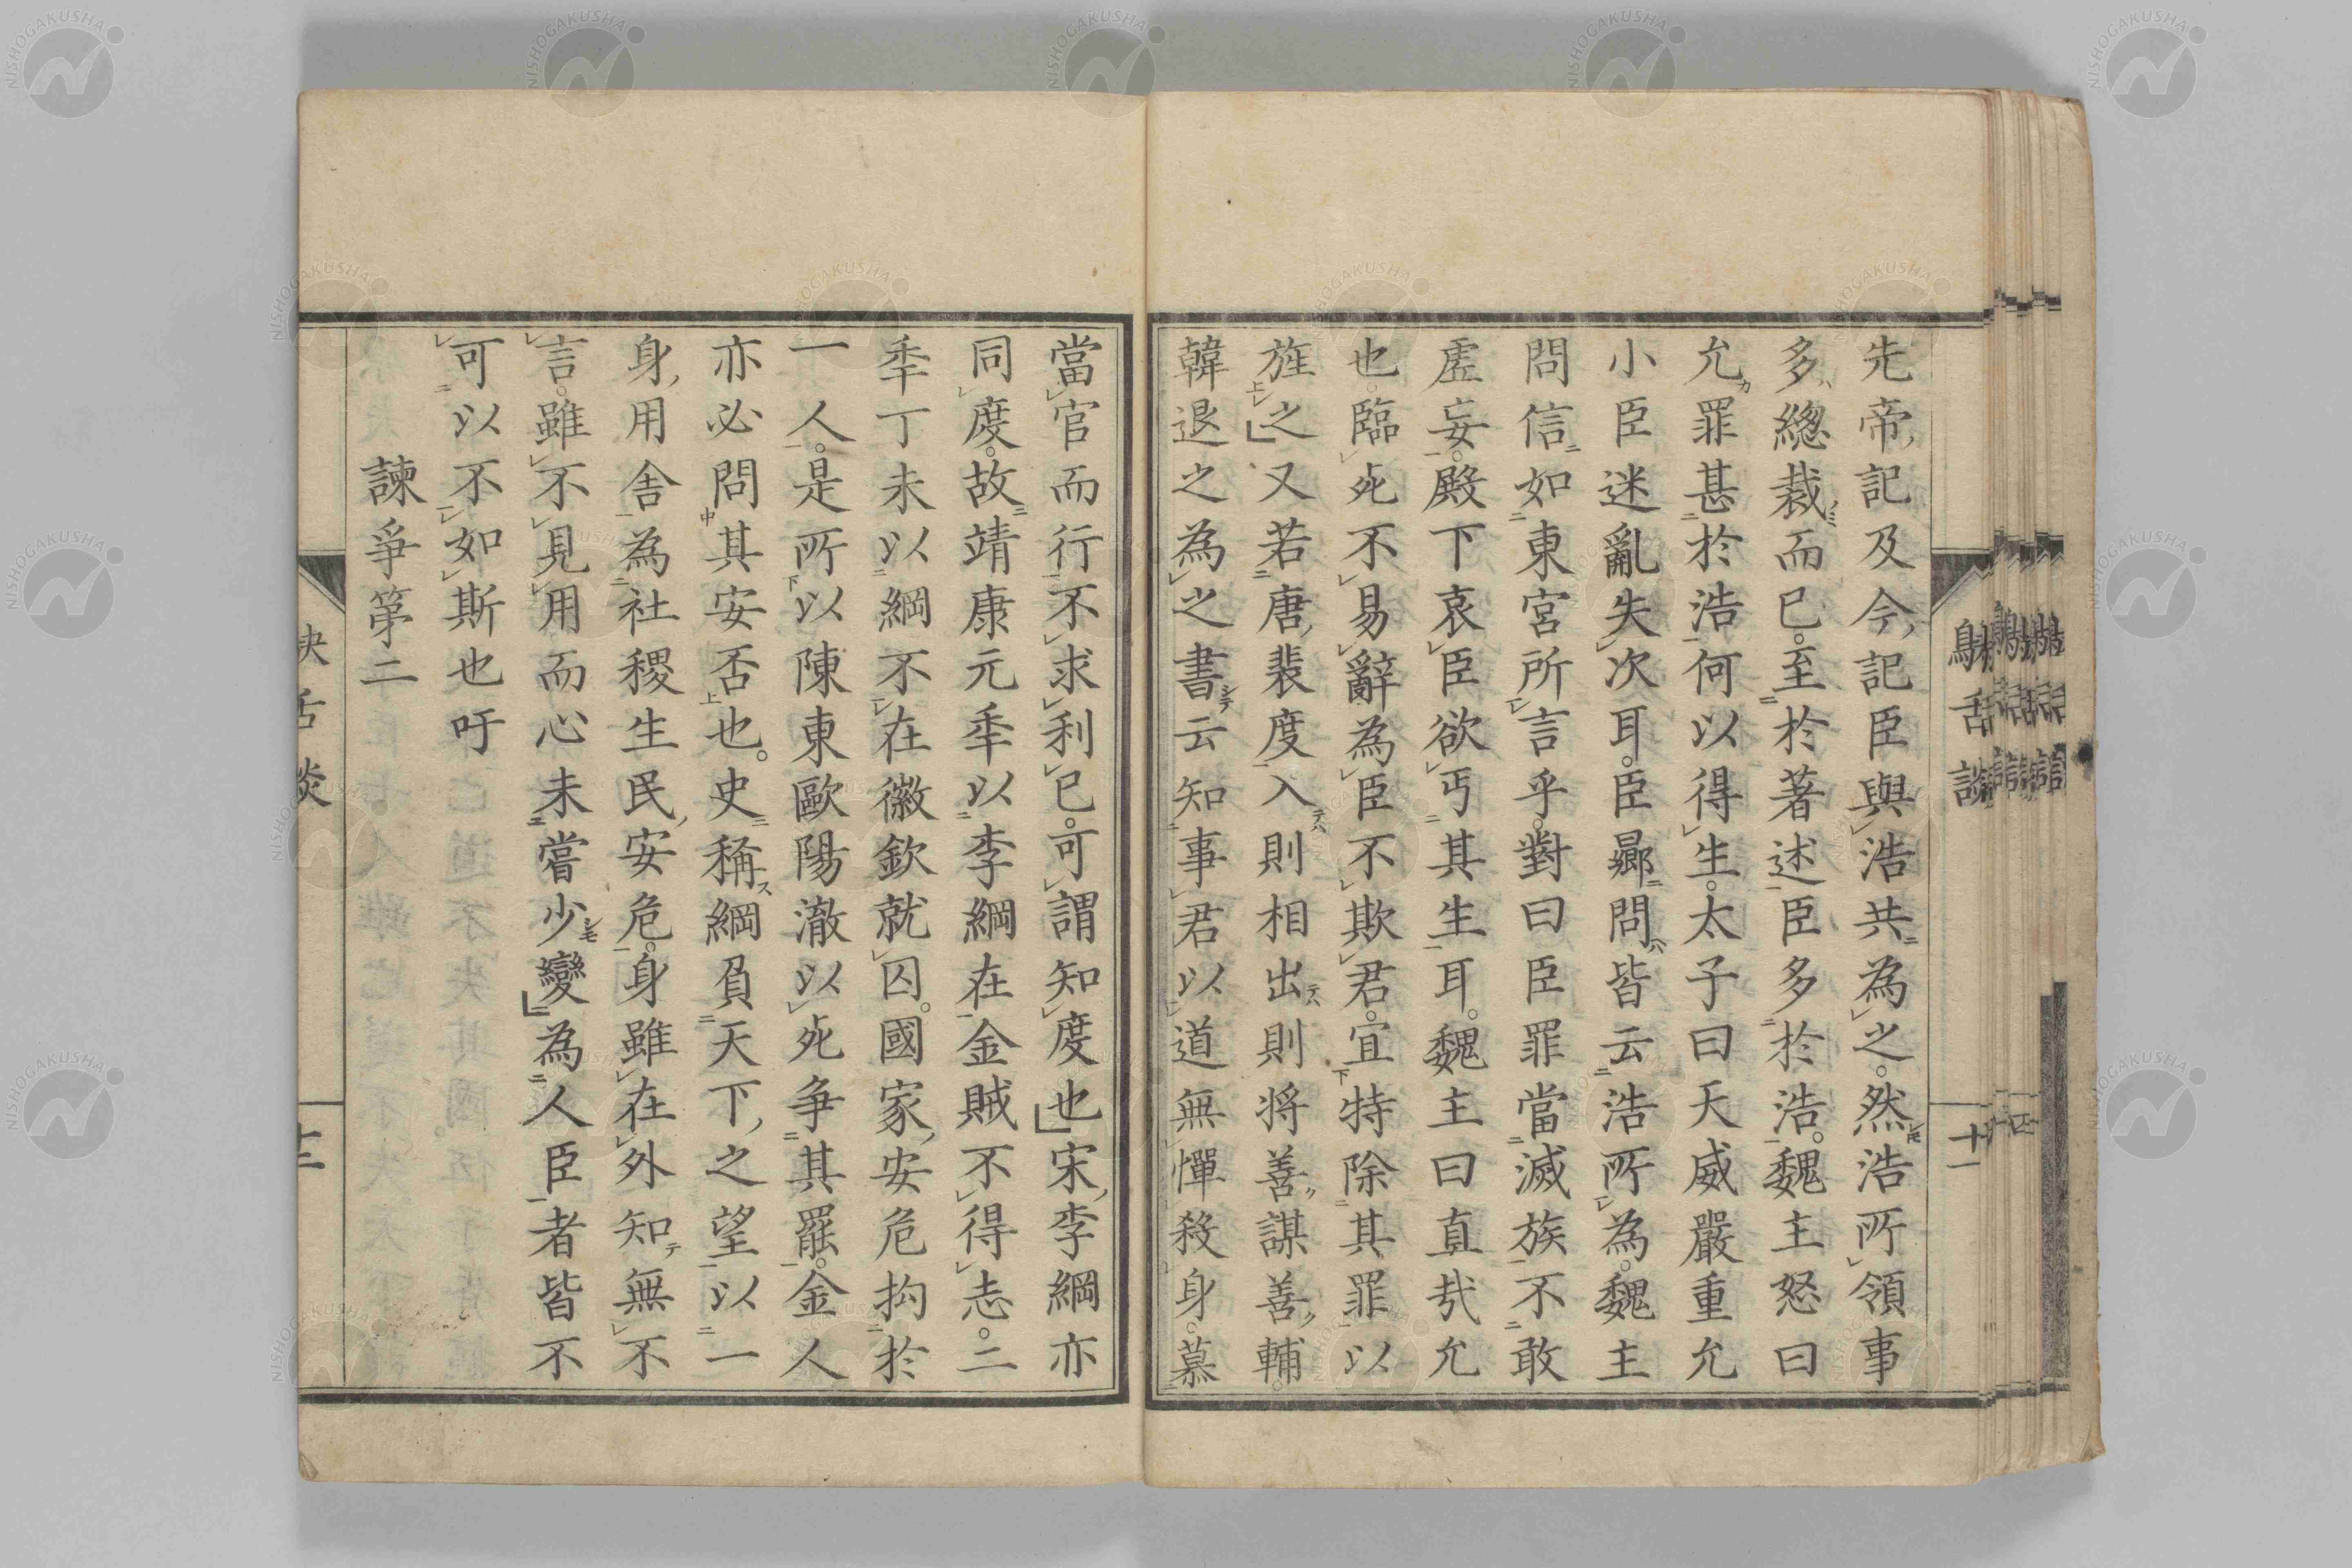 先帝記及今記臣與浩共為之。然浩所領事
多總裁而已。至於著述臣多於浩。魏主怒曰
允罪甚於浩何以得生。太子曰天威嚴重允
小臣迷亂失次耳。臣曏問皆云浩所為。魏主
問信如東宮所言乎。對曰臣罪當滅族不敢
虛妄。殿下哀臣欲丐其生耳。魏主曰直哉允
也。臨死不易辭為臣不欺君。宜特除其罪以
旌之」又若唐裴度入則相出則将善謀善輔。
韓退之為之書云知事君以道無憚殺身。慕
當官而行不求利已。可謂知度也」宋李綱亦
同度。故靖康元秊以李綱在金賊不得志。二
秊丁未以綱不在徽欽就囚。國家安危抅於
一人。是所以陳東歐陽澈以死争其罷。金人
亦必問其安否也。史稱綱負天下之望以一
身用舎為社稷生民安危。身雖在外知無不
言。雖不見用而心未嘗少變」為人臣者皆不
可以不如斯也吁
諫爭第二
鴃舌談
十一